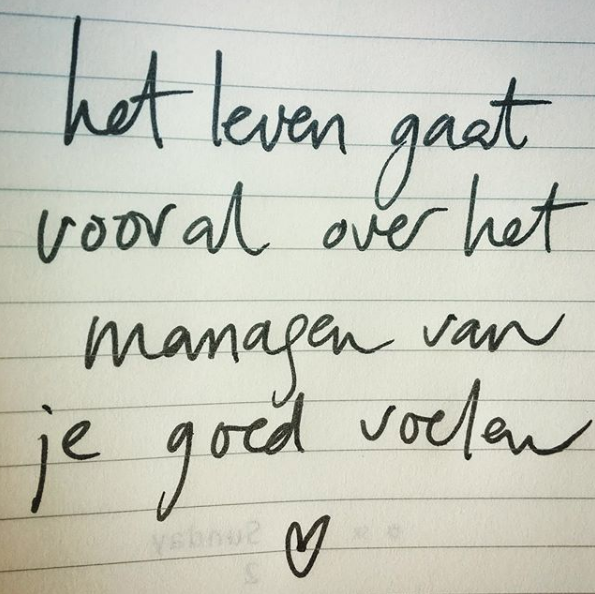 het leven gaat
vooral over het
managen van
je goed voelen
♡
Sunday
2